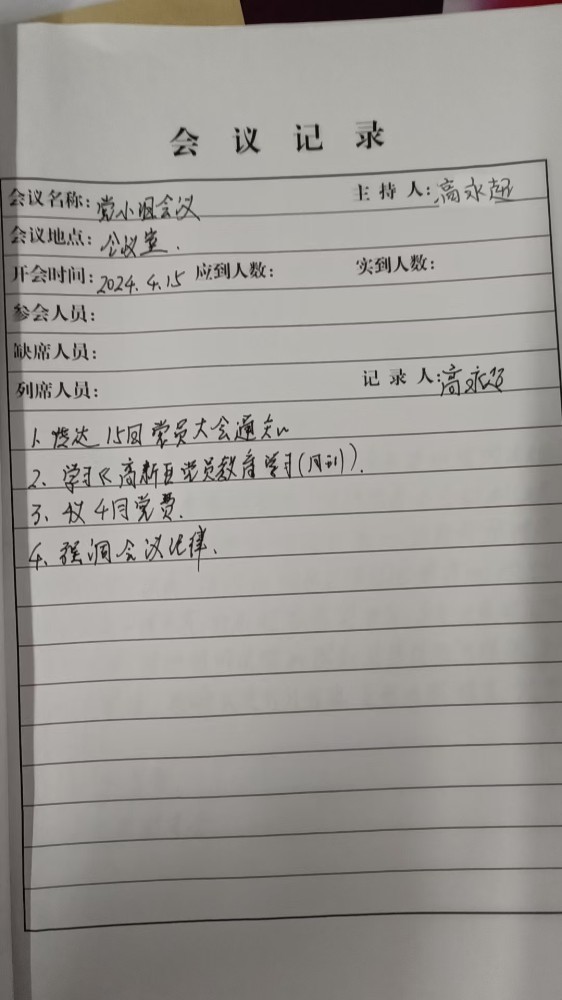 会议记录
会议名称:党小组会议 主持人:高永超
会议地点:会议室.
开会时间:2024.4.15 应到人数: 实到人数:
参会人员:
缺席人员:
列席人员: 记录人:高永超
1、传达15日党员大会通知
2、学习《高新区党员教育学习(月刊).
3、收4月党费.
4、强调会议纪律.